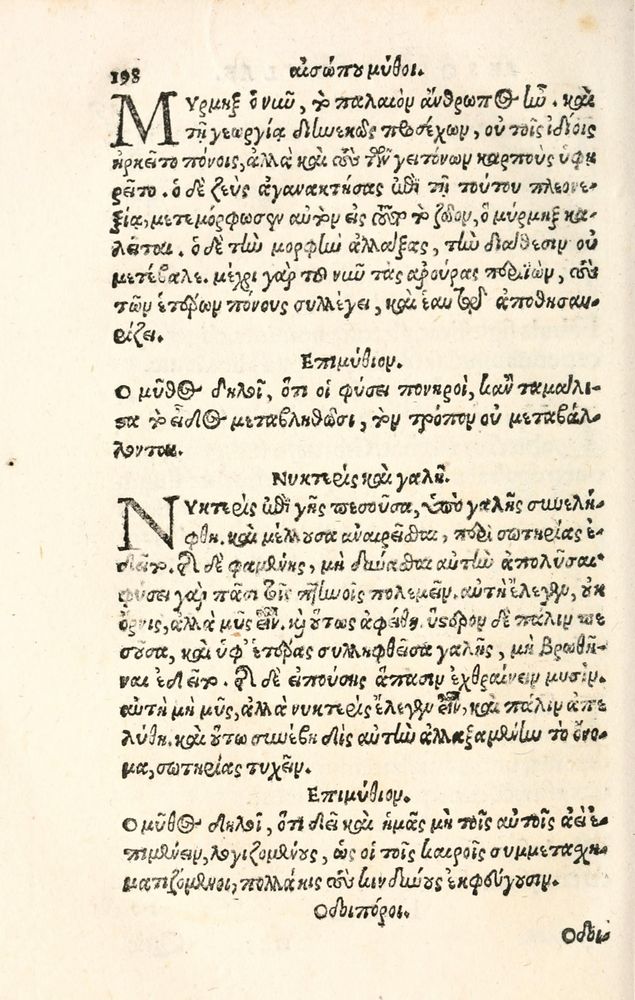 198 αἰσώπου μῦθοι.
Μύρμηξ ὁ νῦν, τὸ παλαιὸν ἄνθρωπος ἦν. καὶ
τῇ γεωργίᾳ διηνεκῶς προσέχων, οὐ τοῖς ἰδίοις
ἠρκεῖτο πόνοις, ἀλλὰ καὶ τοὺς τῶν γειτόνων καρποὺς ὑφῃ
ρεῖτο. ὁ δὲ ζεὺς ἀγανακτήσας ἐπὶ τῇ τούτου πλεονε-
ξίᾳ, μετεμόρφωσεν αὐτὸν εἰς τοῦτο τὸ ζῶον, ὃ μύρμηξ κα-
λεῖται. ὁ δὲ τὴν μορφὴν ἀλλάξας, τὴν διάθεσιν οὐ
μετέβαλε. μέχρι γὰρ τοῦ νῦν τὰς ἀρούρας περιϊὼν, τοὺς
τῶν ἑτέρων πόνους συλλέγει, καὶ ἑαυτῷ ἀποθησαυ-
ρίζει.
Επιμύθιον.
Ο μῦθος δηλοῖ, ὅτι οἱ φύσει πονηροὶ, κἂν τὰ μάλι-
στα τὸ εἶδος μεταβληθῶσι, τὸν τρόπον οὐ μεταβάλ-
λονται.
Νυκτερὶς καὶ γαλῆ.
Νυκτερὶς ἐπὶ γῆς πεσοῦσα, ὑπὸ γαλῆς συνελή-
φθη. καὶ μέλλουσα ἀναιρεῖσθαι, περὶ σωτηρίας ἐ-
δεῖτο. τῆς δὲ φαμένης, μὴ δύνασθαι αὐτὴν ἀπολῦσαι·
φύσει γὰρ πᾶσι τοῖς πτηνοῖς πολεμεῖν. αὐτὴ ἔλεγεν, οὐκ
ὄρνις, ἀλλὰ μῦς εἶναι. καὶ οὕτως ἀφέθη. ὕστερον δὲ πάλιν πε
σοῦσα, καὶ ὑφ' ἑτέρας συλληφθεῖσα γαλῆς, μὴ βρωθῆ-
ναι ἐδεῖτο. τῆς δὲ εἰπούσης ἅπασιν ἐχθραίνειν μυσὶν.
αὐτὴ μὴ μῦς, ἀλλὰ νυκτερὶς ἔλεγεν εἶναι, καὶ πάλιν ἀπε
λύθη. καὶ οὕτω συνέβη δὶς αὐτὴν ἀλλαξαμένην τὸ ὄνο-
μα, σωτηρίας τυχεῖν.
Επιμύθιον.
Ο μῦθος δηλοῖ, ὅτι δεῖ καὶ ἡμᾶς μὴ τοῖς αὐτοῖς ἀεὶ ἐ-
πιμένειν, λογιζομένους, ὡς οἱ τοῖς καιροῖς συμμετασχη-
ματιζόμενοι, πολλάκις τοὺς κινδύνους ἐκφεύγουσιν.
Οδοιπόροι.
Οδοι-